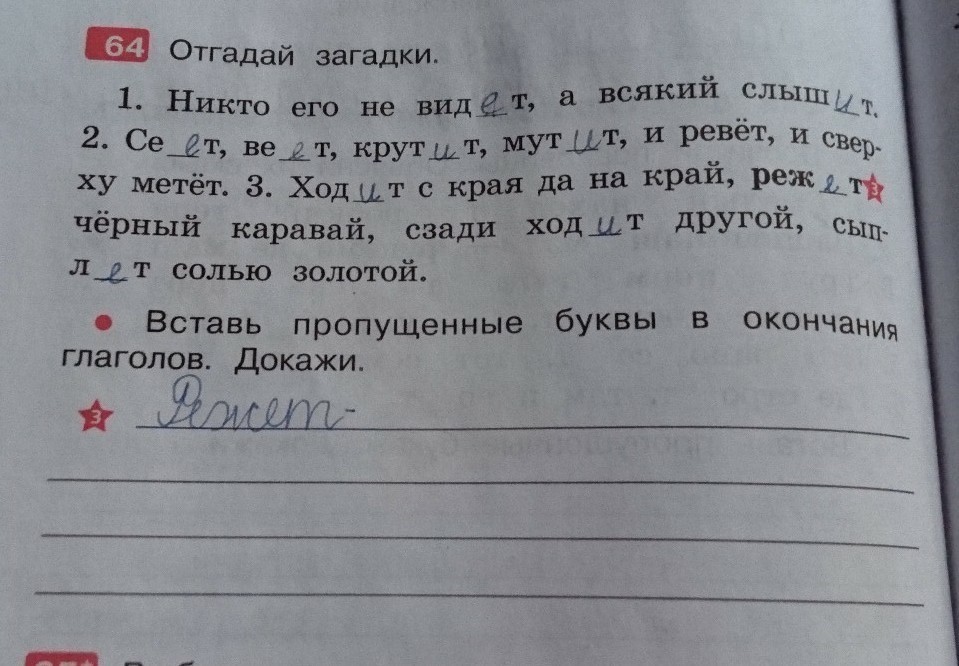 64 Отгадай загадки.
1. Никто его не видет, а всякий слышит.
2. Сеет, веет, крутит, мутит, и ревёт, и свер-
ху метёт. 3. Ходит с края да на край, режет 3
чёрный каравай, сзади ходит другой, сып-
лет солью золотой.
• Вставь пропущенные буквы в окончания
глаголов. Докажи.
3 Режет-